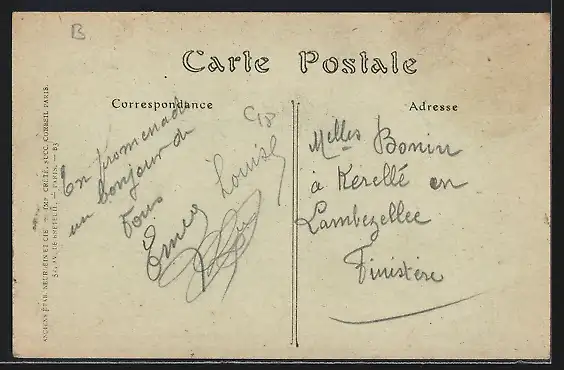 B
Carte Postale
Correspondance
Adresse
C18
En promenade
un bonjour de
tous
Louise
Melles Bonin
à Kerellé en
Lambezellec
Finistère
ANCIENS ÉTAB. NEURDEIN ET CIE — IMP. CRÉTÉ, SUCC. CORBEIL-PARIS.
52, AV. DE BRETEUIL — PARIS.